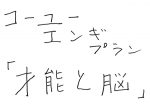 コーユー
エンギ
プラン
「才能と脳」